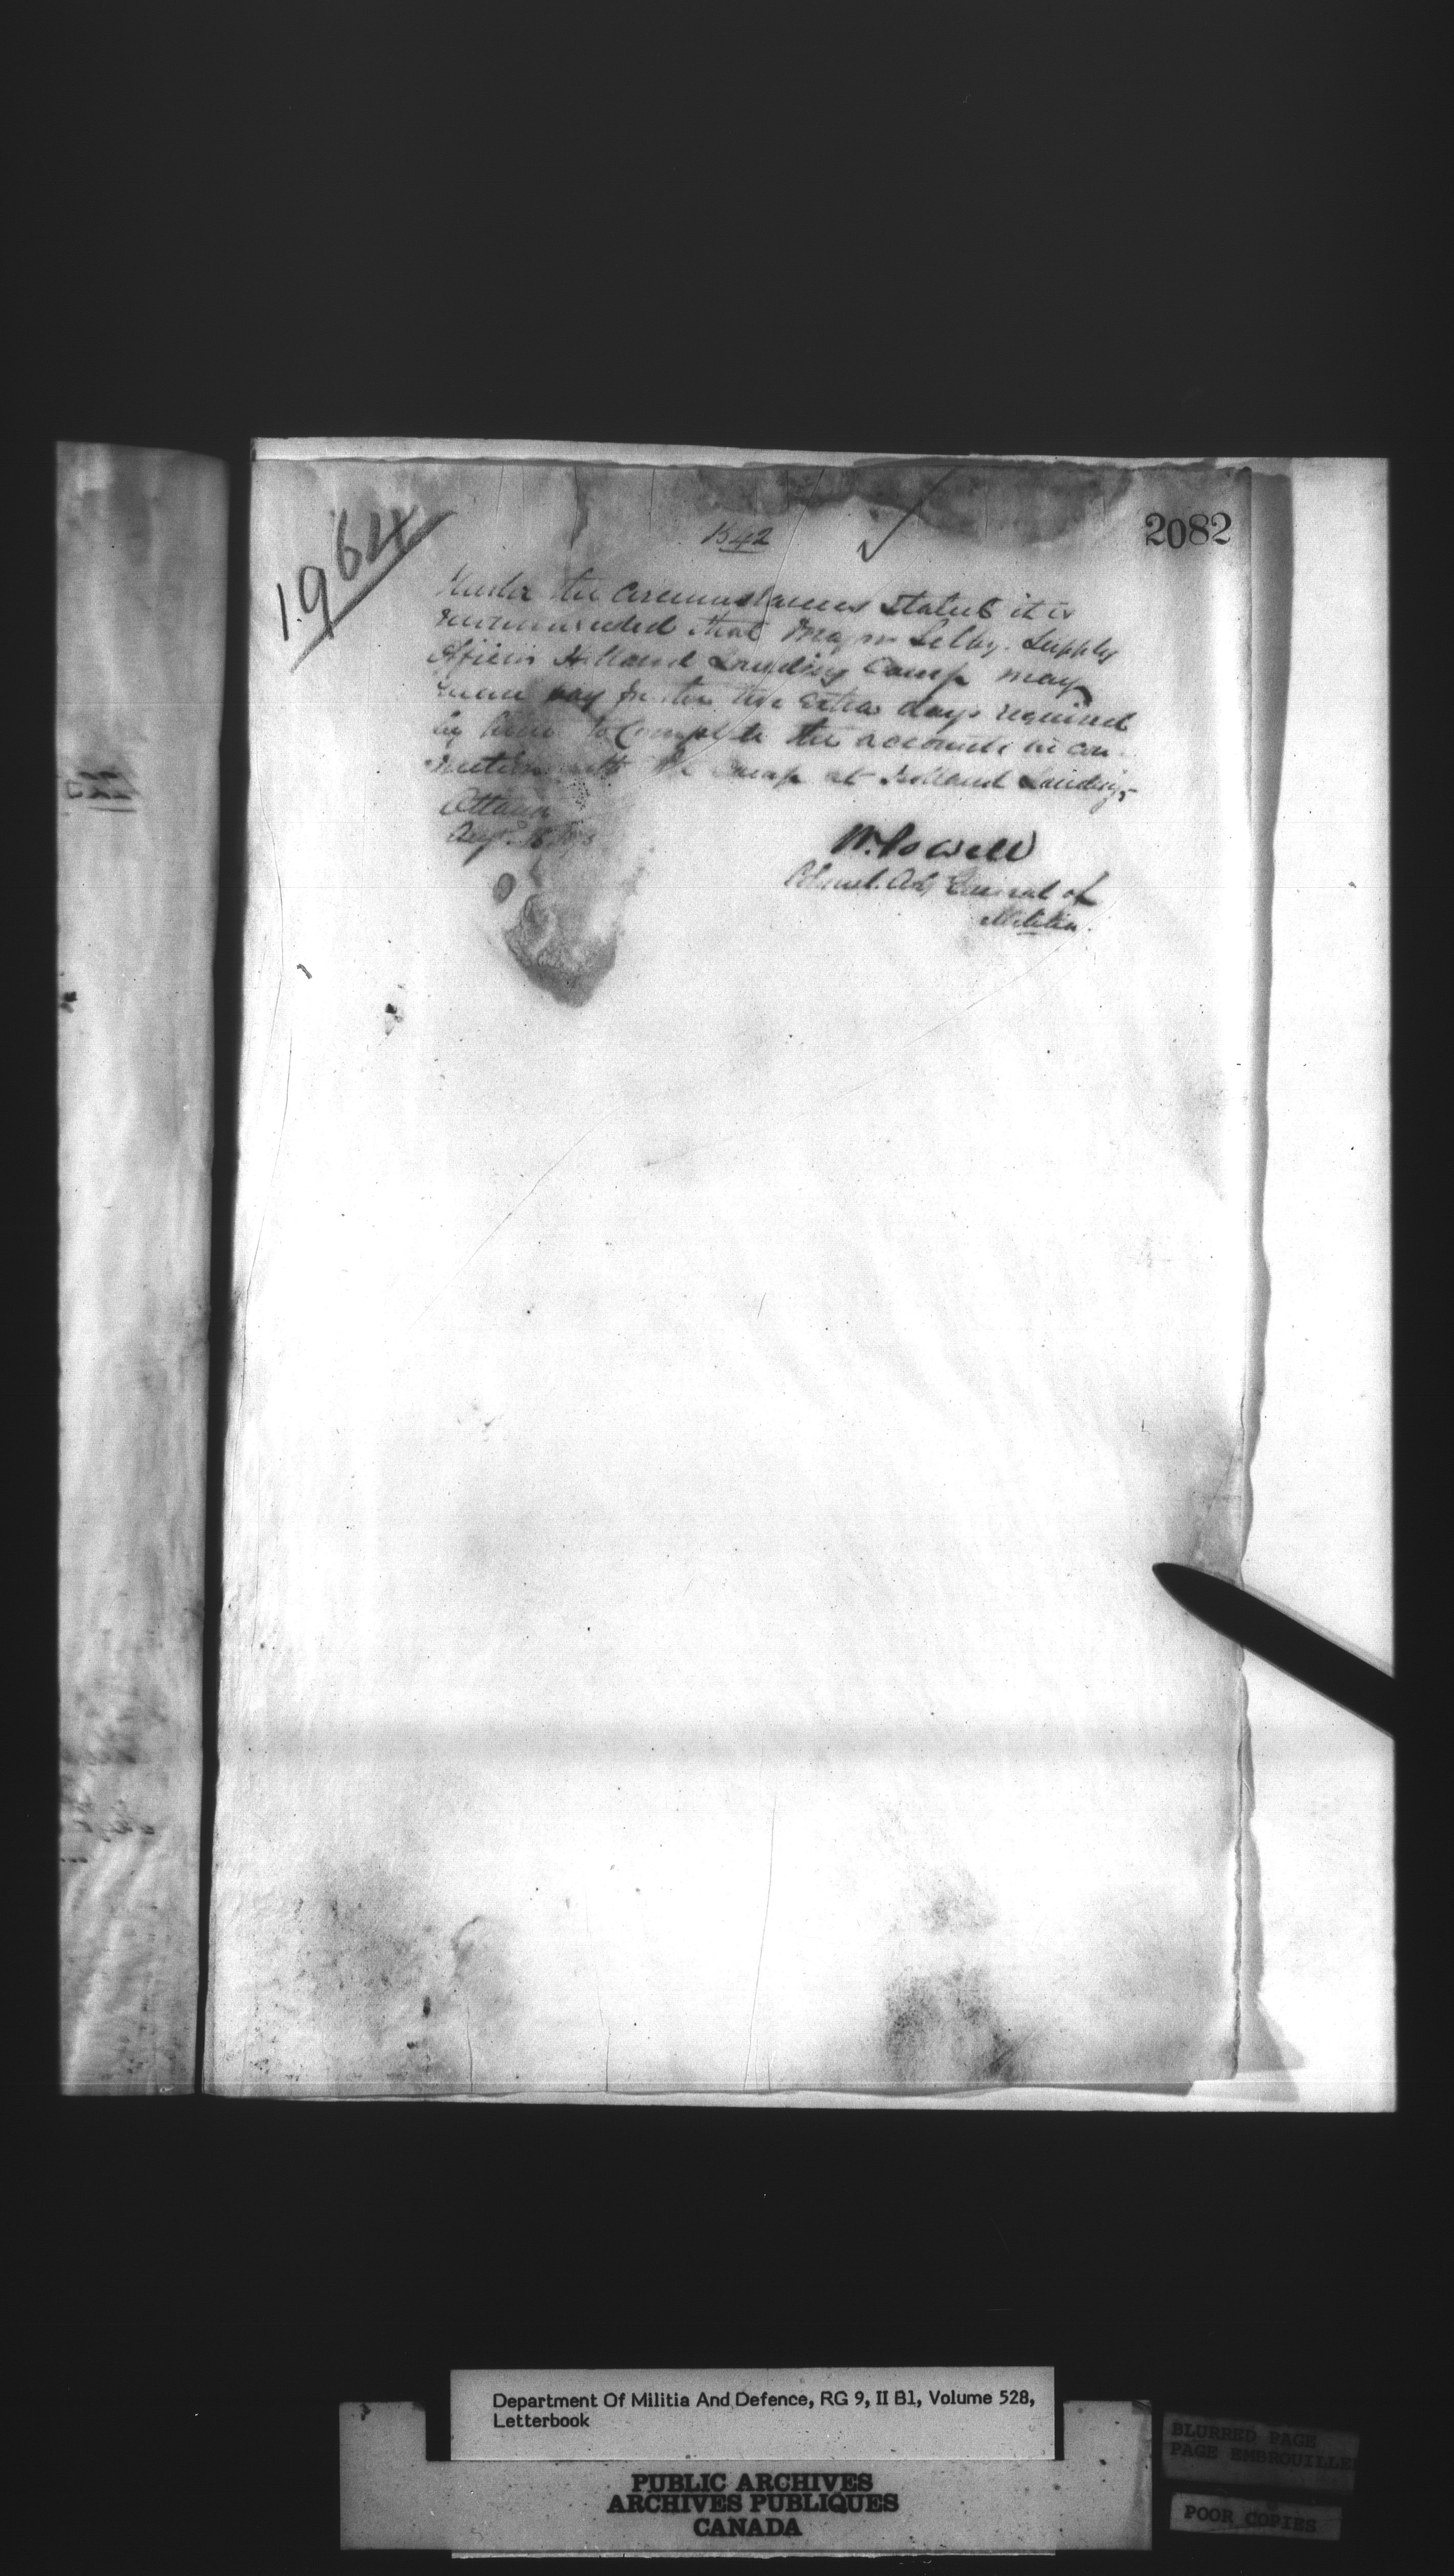 1964
1542
2082
Under the circumstances stated it is
recommended that Major Selby. Supply
Officer Holland Landing Camp may
pay for the extra days required
by him to Complete the accounts in con-
nection with the Camp at Holland Landing,-
Ottawa
Aug.
W. Powell
Colonel. Adj General of
Militia.
Department Of Militia And Defence, RG 9, II B1, Volume 528,
Letterbook
PUBLIC ARCHIVES
ARCHIVES PUBLIQUES
CANADA
BLURRED PAGE
PAGE EMBROUILLE
POOR COPIES